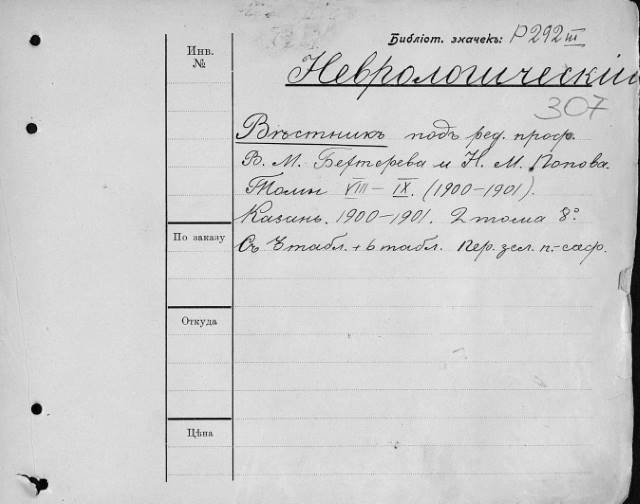 Библіот. значекъ: P292 III
Инв.
№
Неврологическій
307
Вѣстникъ подъ ред. проф.
В. М. Бехтерева и Н. М. Попова.
Томы VIII – IX. (1900–1901).
Казань. 1900–1901. 2 тома 8°
По заказу
Съ табл. + 6 табл. Пер. зел. п.-саф.
Откуда
Цѣна